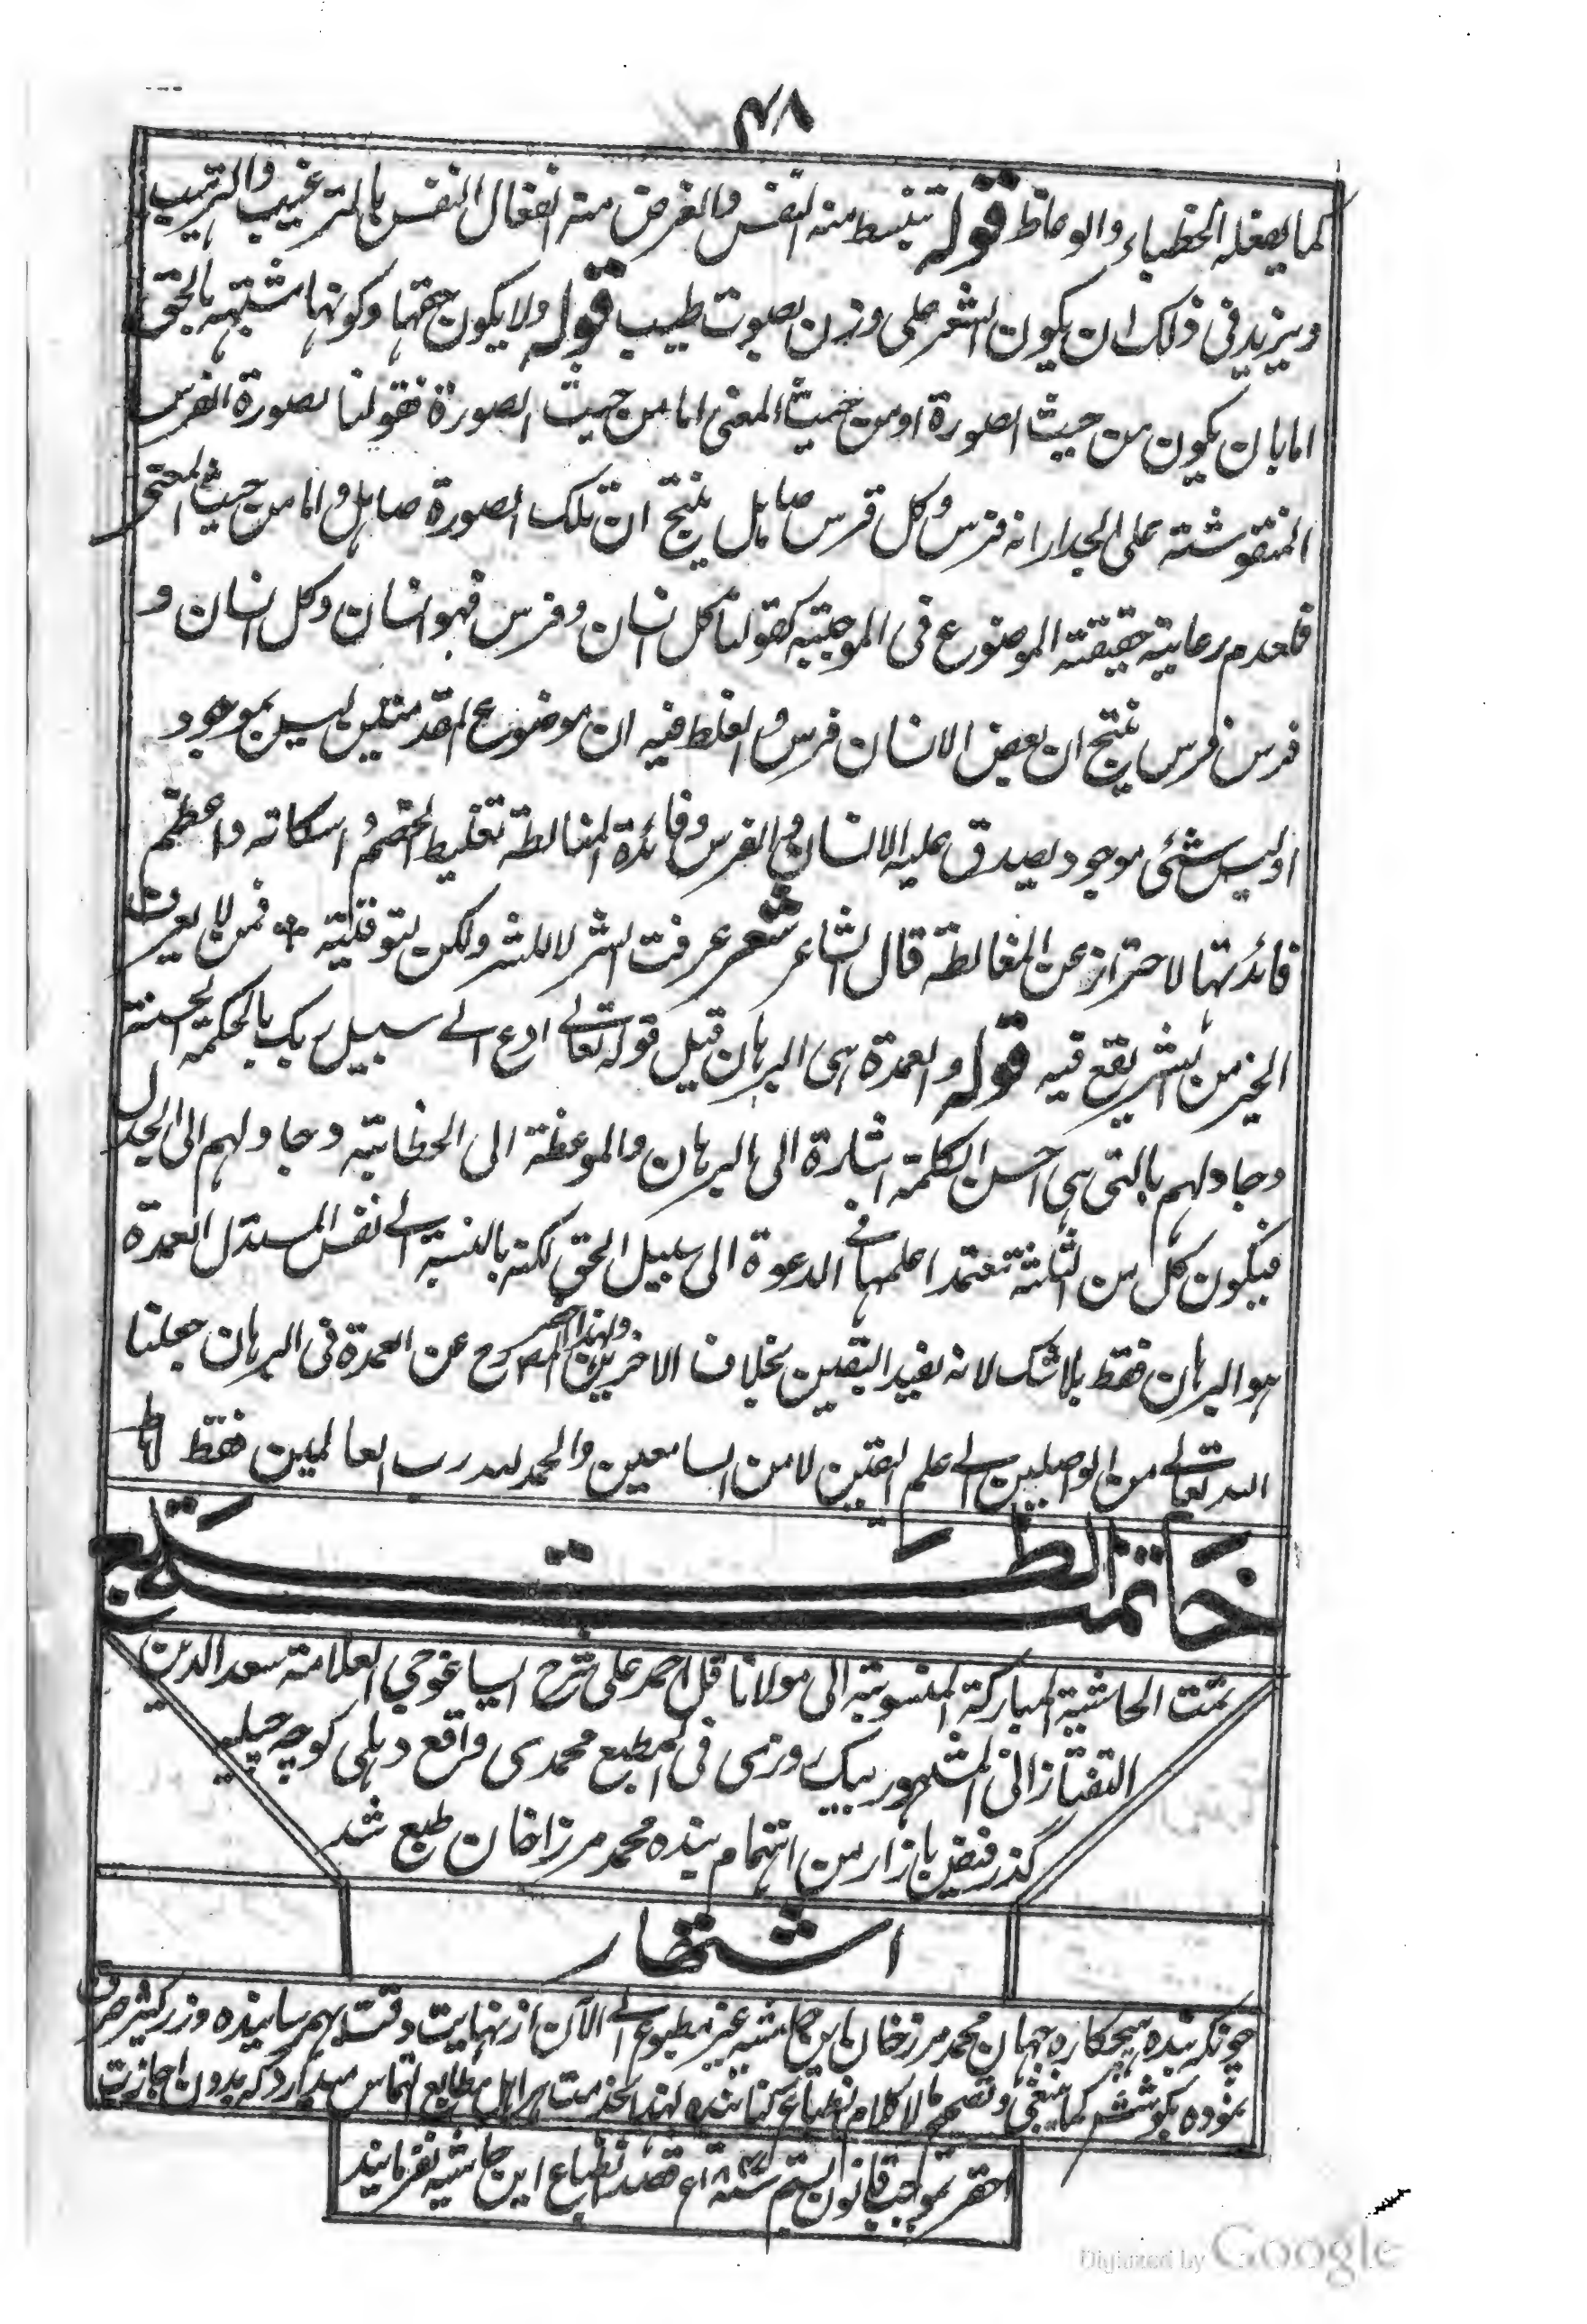 ۴۸
كما يفعله الخطباء والوعاظ قوله تنبسط منه النفس والغرض منه انفعال النفس بالترغيب والترهيب
ويزيد فى ذلك ان يكون الشعر على وزن بصوت طيب قوله ولا يكون حقها وكونها مشبهة بالحق
اما بان يكون من حيث الصورة او من حيث المعنى اما من حيث الصورة فقولنا لصورة الفرس
المنقوشة على الجدار انه فرس وكل فرس صاهل ينتج ان تلك الصورة صاهل واما من حيث المعنى
فلعدم رعاية حقيقة الموضوع فى الموجبة كقولنا كل انسان وفرس فهو انسان وكل انسان و
فرس فرس ينتج ان بعض الانسان فرس والغلط فيه ان موضوع المقدمتين ليس بموجود
اوليس شئى موجود يصدق عليه الانسان والفرس وفائدة المغالطة تغليط الخصم واسكاته واعظم
فائدتها لاحتراز عن المغالطة قال الشاعر شعر عرفت الشر لا للشر ولكن لتوقيته فمن لا يعرف
الخير من الشر يقع فيه قوله والعمدة هى البرهان قيل قوله تعالے ادع الے سبيل ربك بالحكمة الحسنة
وجادلهم بالتى هى احسن الكلمة اشارة الى البرهان والموعظة الى الخطابة وجادلهم الى الجدل
فيكون كل من الثلثة تعتمد اعلمها فے الدعوة الى سبيل الحق لكنه بالنسبة الے نفس المستدل العمدة
هو البرهان فقط بلا شك لانه يفيد اليقين بخلاف الاخرين ولهذا حصر المصرح عن العمدة فى البرهان جعلنا
الله تعالے من الواصلين الے علم اليقين لا من السامعين والحمد لله رب العالمين فقط
خاتمة الطبع
تمت الحاشية المباركة المنسوبة الى مولانا قل احمد على شرح ايساغوجى العلامة سعد الدين
التفتازانى المشهور بيك روزى فى المطبع محمدى واقع دهلى كوچه چيله
گذر فيض بازار من اهتمام بنده محمد مرزا خان طبع شد
اشتهار
چونكه بنده هيچكاره جهان محمد مرزا خان اين حاشيه غير مطبوع الے الآن از نهايت دقت بهم رسانيده وزر كثير صرف
نموده بكوشش كما ينبغى وتصحيح مالا كلام انطباع كنانيده لهذا بخدمت هر اهل مطابع التماس ميدارد كه بدون اجازت
احقر بموجب قانون بستم سنه ۱۸۴۷ع قصد انطباع اين حاشيه نفرمايند
Digitized by Google